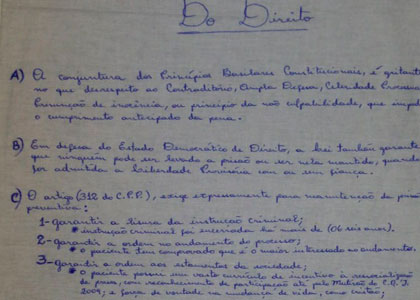 Do Direito
A) A conjuntura dos Princípios Basilares Constitucionais, é gritante
no que desrespeito ao Contraditório, Ampla Defesa, Celeridade Processu
Presunção de inocência, ou princípio da não culpabilidade, que impe
o cumprimento antecipado da pena.
B) Em defesa do Estado Democrático de Direito, a lei Também garante
que ninguém pode ser levado a prisão ou ser nela mantido, quando
for admitida a liberdade Provisória com ou sem fiança.
C) O artigo (312 do C.P.P.), exige expressamente para manutenção da prisã
preventiva:
1- Garantir a lisura da instrução criminal;
• instrução criminal foi encerrada há mais de (06 seis anos).
2- garantir a ordem no andamento do processo;
• o paciente tem comprovado que é o maior interessado no andamento.
3- Garantir a ordem aos da sociedade;
• o paciente possui um vasto currículo de incentivo à ressocialização
de paz, com reconhecimento de participação até pelo Mutirão do C.N.J.
2009, a força de vontade na mudança de vida, com cristão,